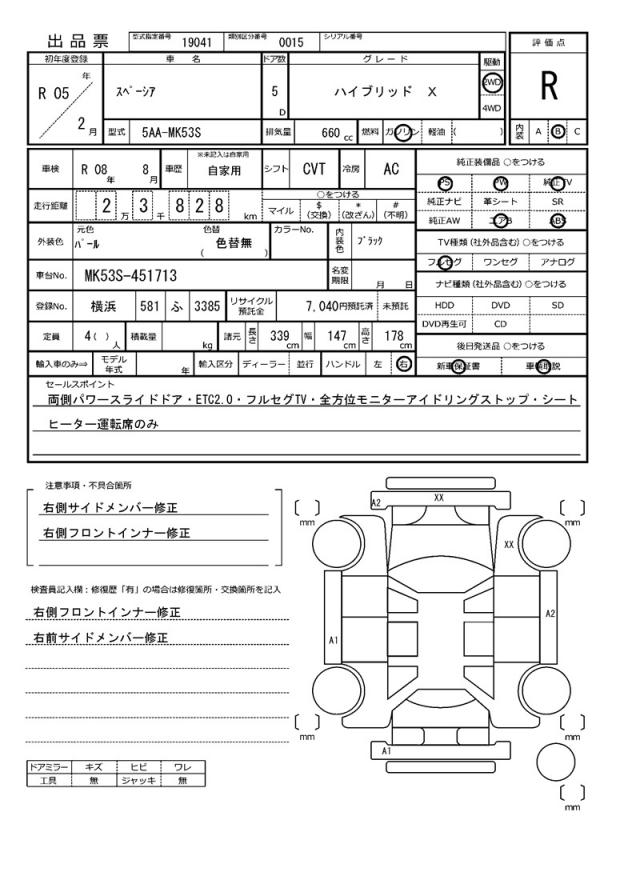 出品票 型式指定番号 19041 類別区分番号 0015 シリアル番号
評価点
R
内装 A B C
初年度登録 車名 ドア数 グレード 駆動
R 05 年 2 月 スペーシア 5 D ハイブリッド X 2WD
4WD
型式 5AA-MK53S 排気量 660 cc 燃料 ガソリン 軽油 ( )
車検 R 08 年 8 月 車歴 ※未記入は自家用 自家用 シフト CVT 冷房 AC
走行距離 2 万 3 千 8 2 8 km ○をつける
マイル $(交換) *(改ざん) #(不明)
外装色 元色 パール 色替 色替無 ( ) カラーNo. 内装色 ブラック
車台No. MK53S-451713 名変期限 月 日
登録No. 横浜 581 ふ 3385 リサイクル預託金 7,040円預託済 未預託
定員 4( ) 人 積載量 kg 諸元 長さ 339 cm 幅 147 cm 高さ 178 cm
輸入車のみ⇒ モデル年式 年 輸入区分 ディーラー 並行 ハンドル 左 右
純正装備品 ○をつける
PS PW 純正TV
純正ナビ 革シート SR
純正AW エアB ABS
TV種類(社外品含む)○をつける
フルセグ ワンセグ アナログ
ナビ種類(社外品含む)○をつける
HDD DVD SD
DVD再生可 CD
後日発送品 ○をつける
新車保証書 車輌取説
セールスポイント
両側パワースライドドア・ETC2.0・フルセグTV・全方位モニターアイドリングストップ・シート
ヒーター運転席のみ
注意事項・不具合箇所
右側サイドメンバー修正
右側フロントインナー修正
検査員記入欄：修復歴「有」の場合は修復箇所・交換箇所を記入
右側フロントインナー修正
右前サイドメンバー修正
ドアミラー キズ ヒビ ワレ
工具 無 ジャッキ 無
A2 XX
mm mm
XX
A1 A2
mm mm
A1
mm